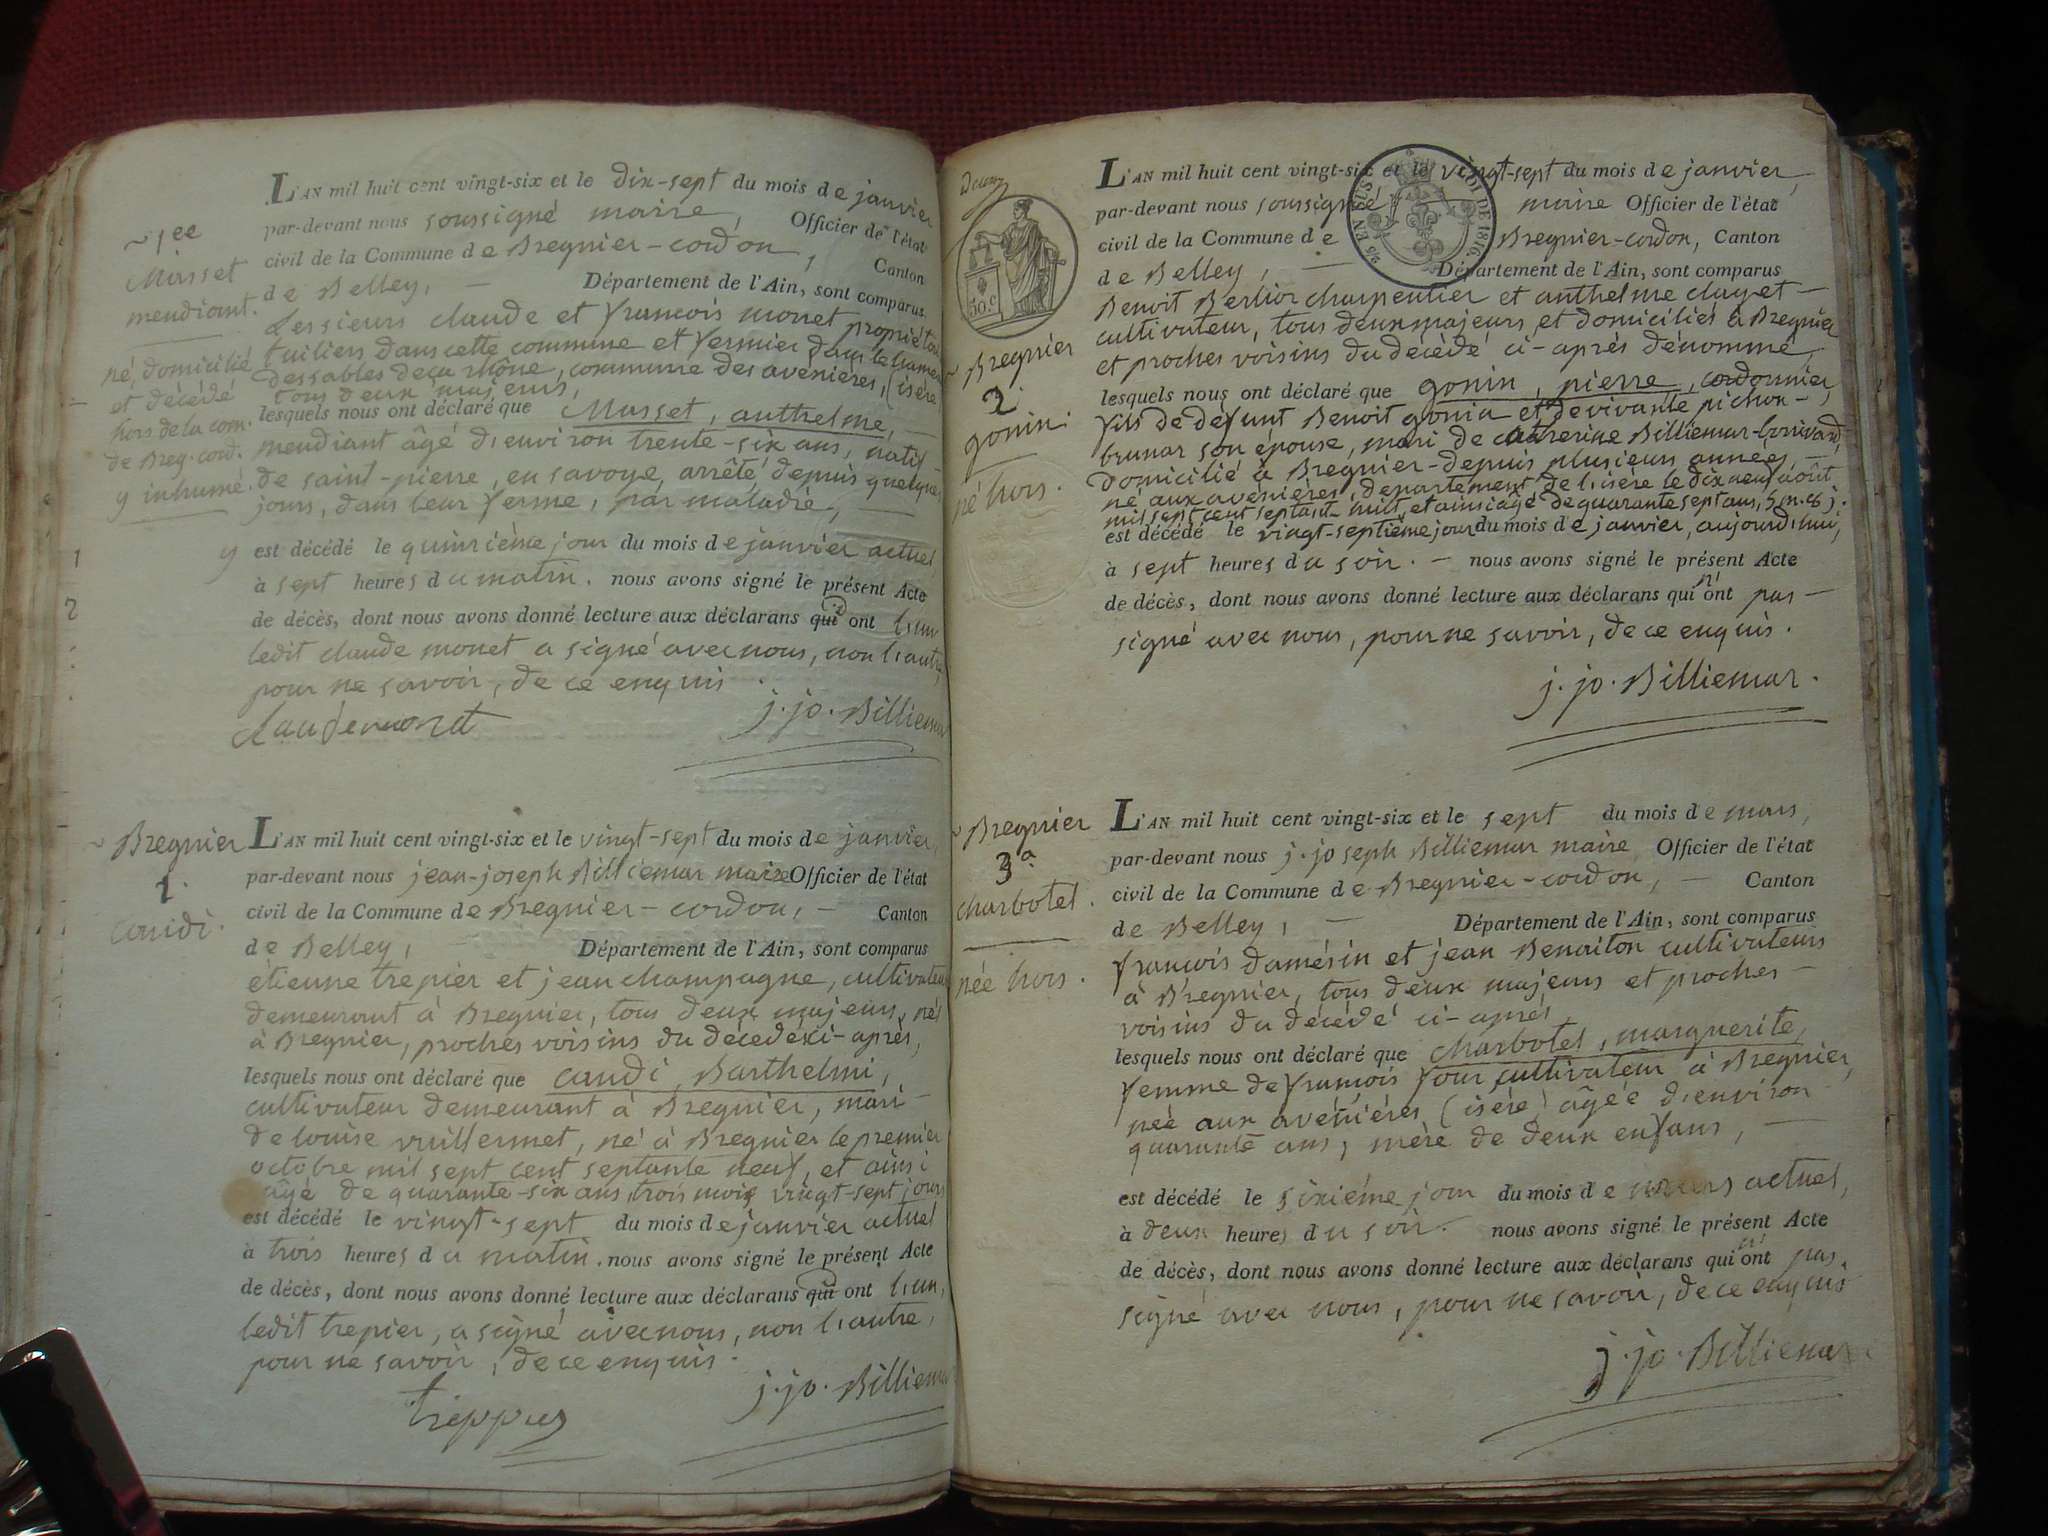 ~ 1ee
Masset
mendiant.
né, domicilié
et décédé
hors de la com.
de Breg. cord.
y inhumé.
L'AN mil huit cent vingt-six et le dix-sept du mois de janvier
par-devant nous soussigné maire, Officier de l'état
civil de la Commune de Bregnier-cordon, Canton
de Belley, — Département de l'Ain, sont comparus
Les sieurs claude et francois monet
tuiliers dans cette commune et fermier dans le
des sables deça rhône, commune des avenières, (isère,
tous deux majeurs,
lesquels nous ont déclaré que Masset, anthelme, —
mendiant âgé d'environ trente-six ans, natif
de saint-pierre, en savoye, arrêté depuis quelques
jours, dans leur ferme, par maladie, —
y est décédé le quinzième jour du mois de janvier actuel
à sept heures du matin. nous avons signé le présent Acte
de décès, dont nous avons donné lecture aux déclarans qui ont l'un
ledit claude monet a signé avec nous, non l'autre,
pour ne savoir, de ce enquis.
j. jo. Billiemar
~ Bregnier
1.
caudi.
L'AN mil huit cent vingt-six et le vingt-sept du mois de janvier,
par-devant nous jean-joseph Billiemar maire Officier de l'état
civil de la Commune de Bregnier-cordon, — Canton
de Belley, — Département de l'Ain, sont comparus
étienne trepier et jean champagne, cultivateurs
demeurant à Bregnier, tous deux majeurs, nés
à Bregnier, proches voisins du décédé ci-après,
lesquels nous ont déclaré que caudi, Barthelmi,
cultivateur demeurant à Bregnier, mari
de louise vuillermet, né à Bregnier le premier
octobre mil sept cent septante neuf, et ainsi
âgé de quarante-six ans, trois mois vingt-sept jours
est décédé le vingt-sept du mois de janvier actuel
à trois heures du matin. nous avons signé le présent Acte
de décès, dont nous avons donné lecture aux déclarans qui ont l'un,
ledit trepier, a signé avec nous, non l'autre,
pour ne savoir, de ce enquis.
j. jo. Billiemar
50.c
~ Bregnier
2.
gonin.
né hors.
L'AN mil huit cent vingt-six et le vingt-sept du mois de janvier,
par-devant nous soussigné maire Officier de l'état
civil de la Commune de Bregnier-cordon, Canton
de Belley, — Département de l'Ain, sont comparus
LOI DE 1816.
Benoit Berlior charpentier et anthelme clayet —
cultivateur, tous deux majeurs et domiciliés à Bregnier
et proches voisins du décédé ci-après dénommé,
lesquels nous ont déclaré que gonin, pierre, cordonnier,
fils de defunt Benoit gonin et de vivante pichon-
brunar son épouse, mari de catherine Billiemar-
domicilié à Bregnier depuis plusieurs années, —
né aux avenières, département de l'isère le dix neuf août
mil sept cent septante-huit, et ainsi âgé de quarante sept ans, 5 m. 8 j.
est décédé le vingt-septième jour du mois de janvier, aujourd'hui,
à sept heures du soir. — nous avons signé le présent Acte
de décès, dont nous avons donné lecture aux déclarans qui n'ont pas —
signé avec nous, pour ne savoir, de ce enquis.
j. jo. Billiemar.
~ Bregnier
3.a
charbotel.
née hors.
L'AN mil huit cent vingt-six et le sept du mois de mars,
par-devant nous j. joseph Billiemar maire Officier de l'état
civil de la Commune de Bregnier-cordon, — Canton
de Belley, — Département de l'Ain, sont comparus
françois damésin et jean Benaiton cultivateurs
à Bregnier, tous deux majeurs et proches —
voisins du décédé ci-après,
lesquels nous ont déclaré que charbotel, marguerite,
femme de françois four cultivateur à Bregnier,
née aux avénières (isère) âgée d'environ
quarante ans, mère de deux enfans, —
est décédé le sixiéme jour du mois de mars actuel,
à deux heures du soir. nous avons signé le présent Acte
de décès, dont nous avons donné lecture aux déclarans qui n'ont pas
signé avec nous, pour ne savoir, de ce enquis
j. jo. Billiemar